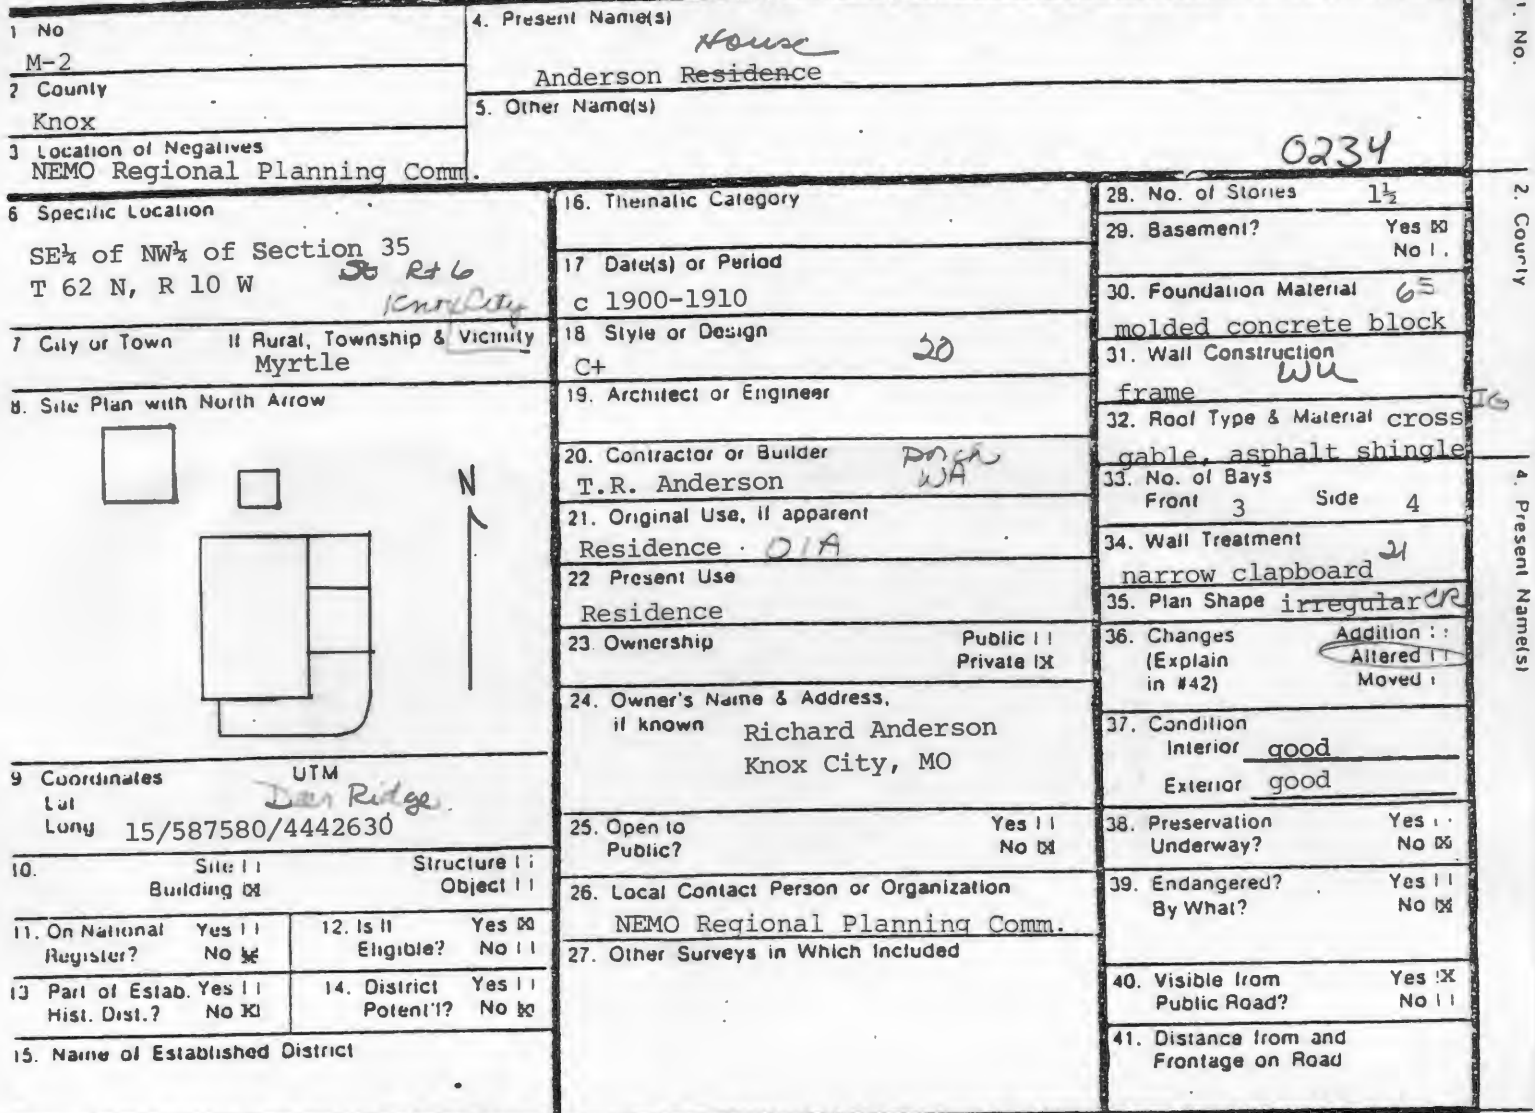 1 No
M-2
2 County
Knox
3 Location of Negatives
NEMO Regional Planning Comm.
4. Present Name(s)
House
Anderson Residence
5. Other Name(s)
0234
6 Specific Location
SE¼ of NW¼ of Section 35
T 62 N, R 10 W
Rt 6
Knox City
7 City or Town If Rural, Township & Vicinity
Myrtle
8. Site Plan with North Arrow
N
9 Coordinates UTM
Lat
Deer Ridge.
Long 15/587580/4442630
10. Site Structure
Building Object
11. On National Register? Yes No
12. Is It Eligible? Yes No
13 Part of Estab. Hist. Dist.? Yes No
14. District Potent'l? Yes No
15. Name of Established District
16. Thematic Category
17 Date(s) or Period
c 1900-1910
18 Style or Design
20
C+
19. Architect or Engineer
20. Contractor or Builder
Porch
WA
T.R. Anderson
21. Original Use, if apparent
Residence 01A
22 Present Use
Residence
23. Ownership Public
Private X
24. Owner's Name & Address,
if known
Richard Anderson
Knox City, MO
25. Open to Public? Yes No
26. Local Contact Person or Organization
NEMO Regional Planning Comm.
27. Other Surveys in Which Included
28. No. of Stories 1½
29. Basement? Yes
No
30. Foundation Material 65
molded concrete block
31. Wall Construction
WU
frame
32. Roof Type & Material cross
IG
gable, asphalt shingle
33. No. of Bays
Front 3 Side 4
34. Wall Treatment
21
narrow clapboard
35. Plan Shape irregular CR
36. Changes Addition
(Explain Altered
in #42) Moved
37. Condition
Interior good
Exterior good
38. Preservation Yes
Underway? No
39. Endangered? Yes
By What? No
40. Visible from Yes X
Public Road? No
41. Distance from and
Frontage on Road
1. No.
2. County
4. Present Name(s)